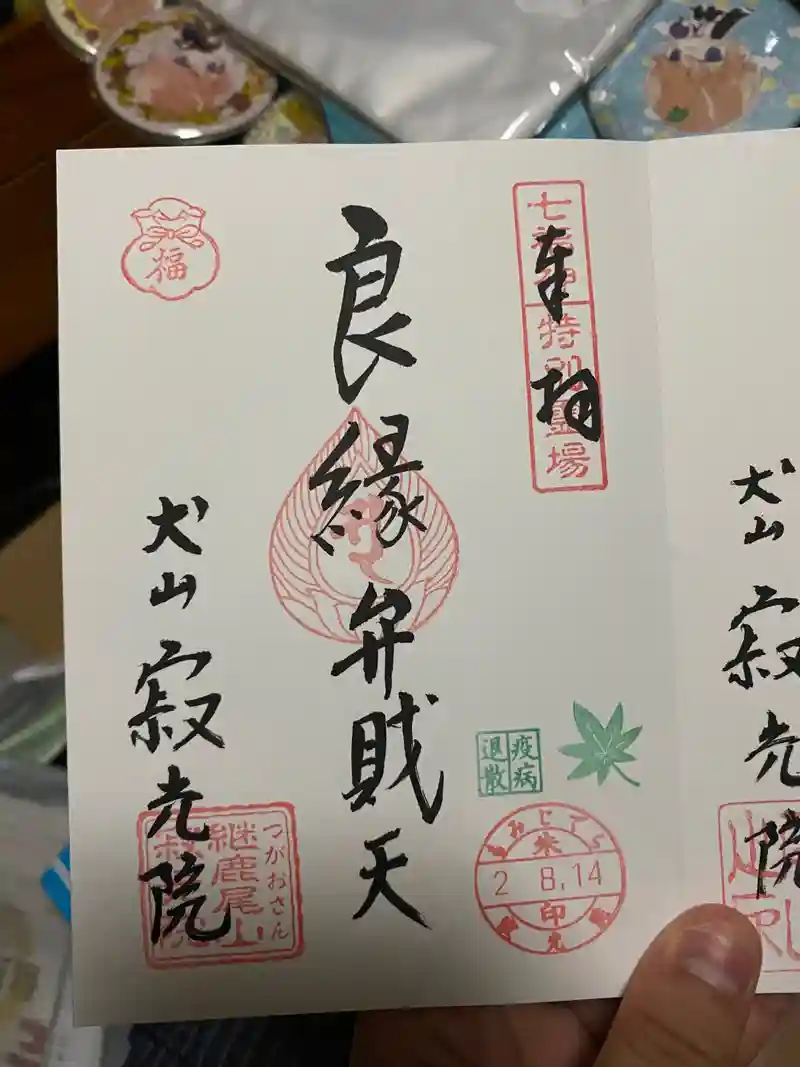 七福神 特別霊場
奉拝
疫病
退散
もみじでら
朱
2 8.14
印
良縁弁財天
福
犬山 寂光院
つがおさん
継鹿尾山
犬山 寂光院